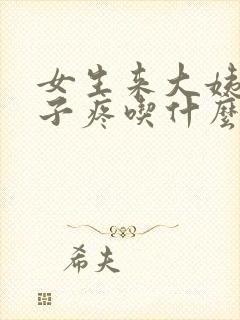 女生来大姨
子疼喫什麽
希夫